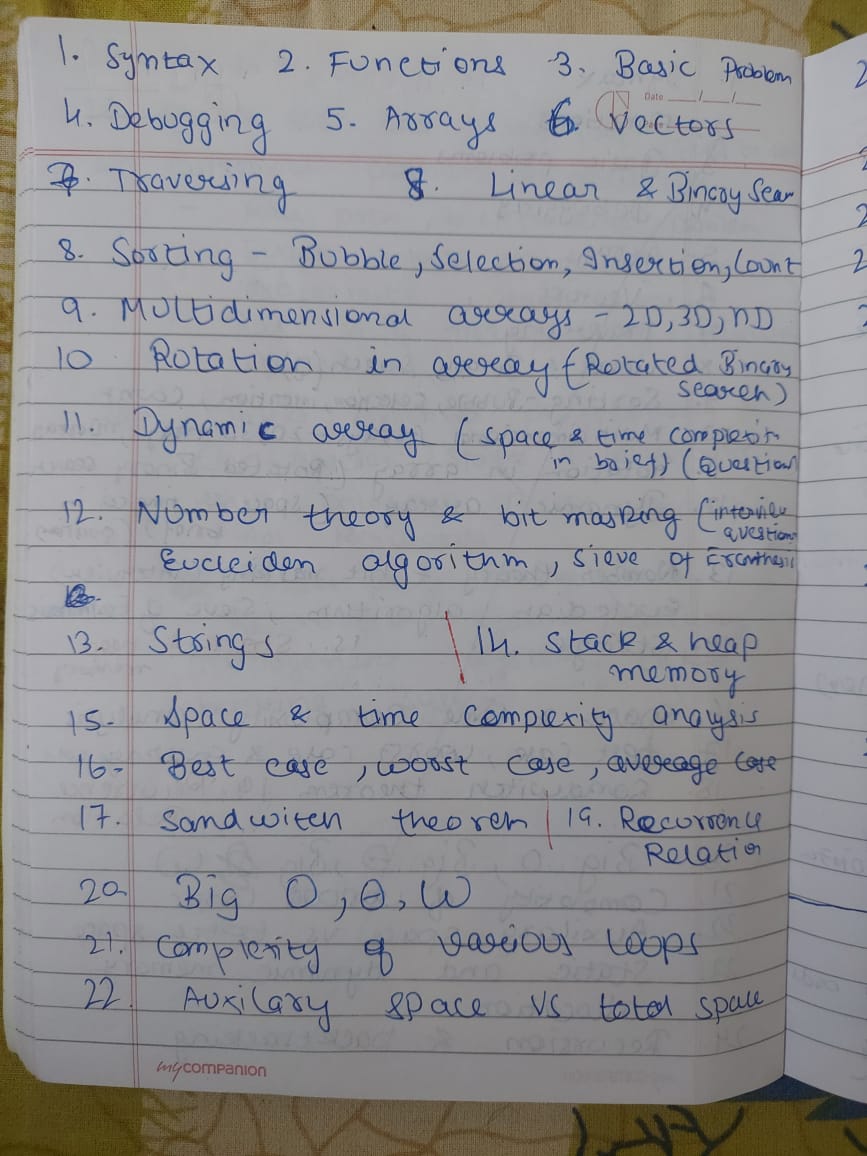 1. Syntax 2. Functions 3. Basic Problem
Date
4. Debugging 5. Arrays 6. Vectors
7. Traversing 8. Linear & Bincoy Sear
8. Sorting - Bubble, Selection, Insertion, Count
9. Multidimensional arrays - 2D, 3D, nD
10 Rotation in array (Rotated Binary
search)
11. Dynamic array (space & time
in brief) (Question
12. Number theory & bit masking (interview
question
Eucleiden algorithm, Sieve of
13. Strings 14. Stack & heap
memory
15- Space & time complexity anaysis
16- Best case, worst case, average case
17. Sandwitch theorem 19. Recurrence
Relation
20 Big O, θ, W
21. Complexity of various loops
22. Auxilary space vs total space
mycompanion